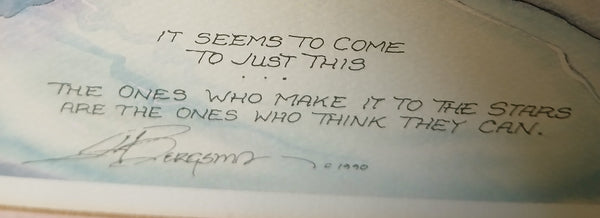 IT SEEMS TO COME
TO JUST THIS
...
THE ONES WHO MAKE IT TO THE STARS
ARE THE ONES WHO THINK THEY CAN.
Bergsma © 1990